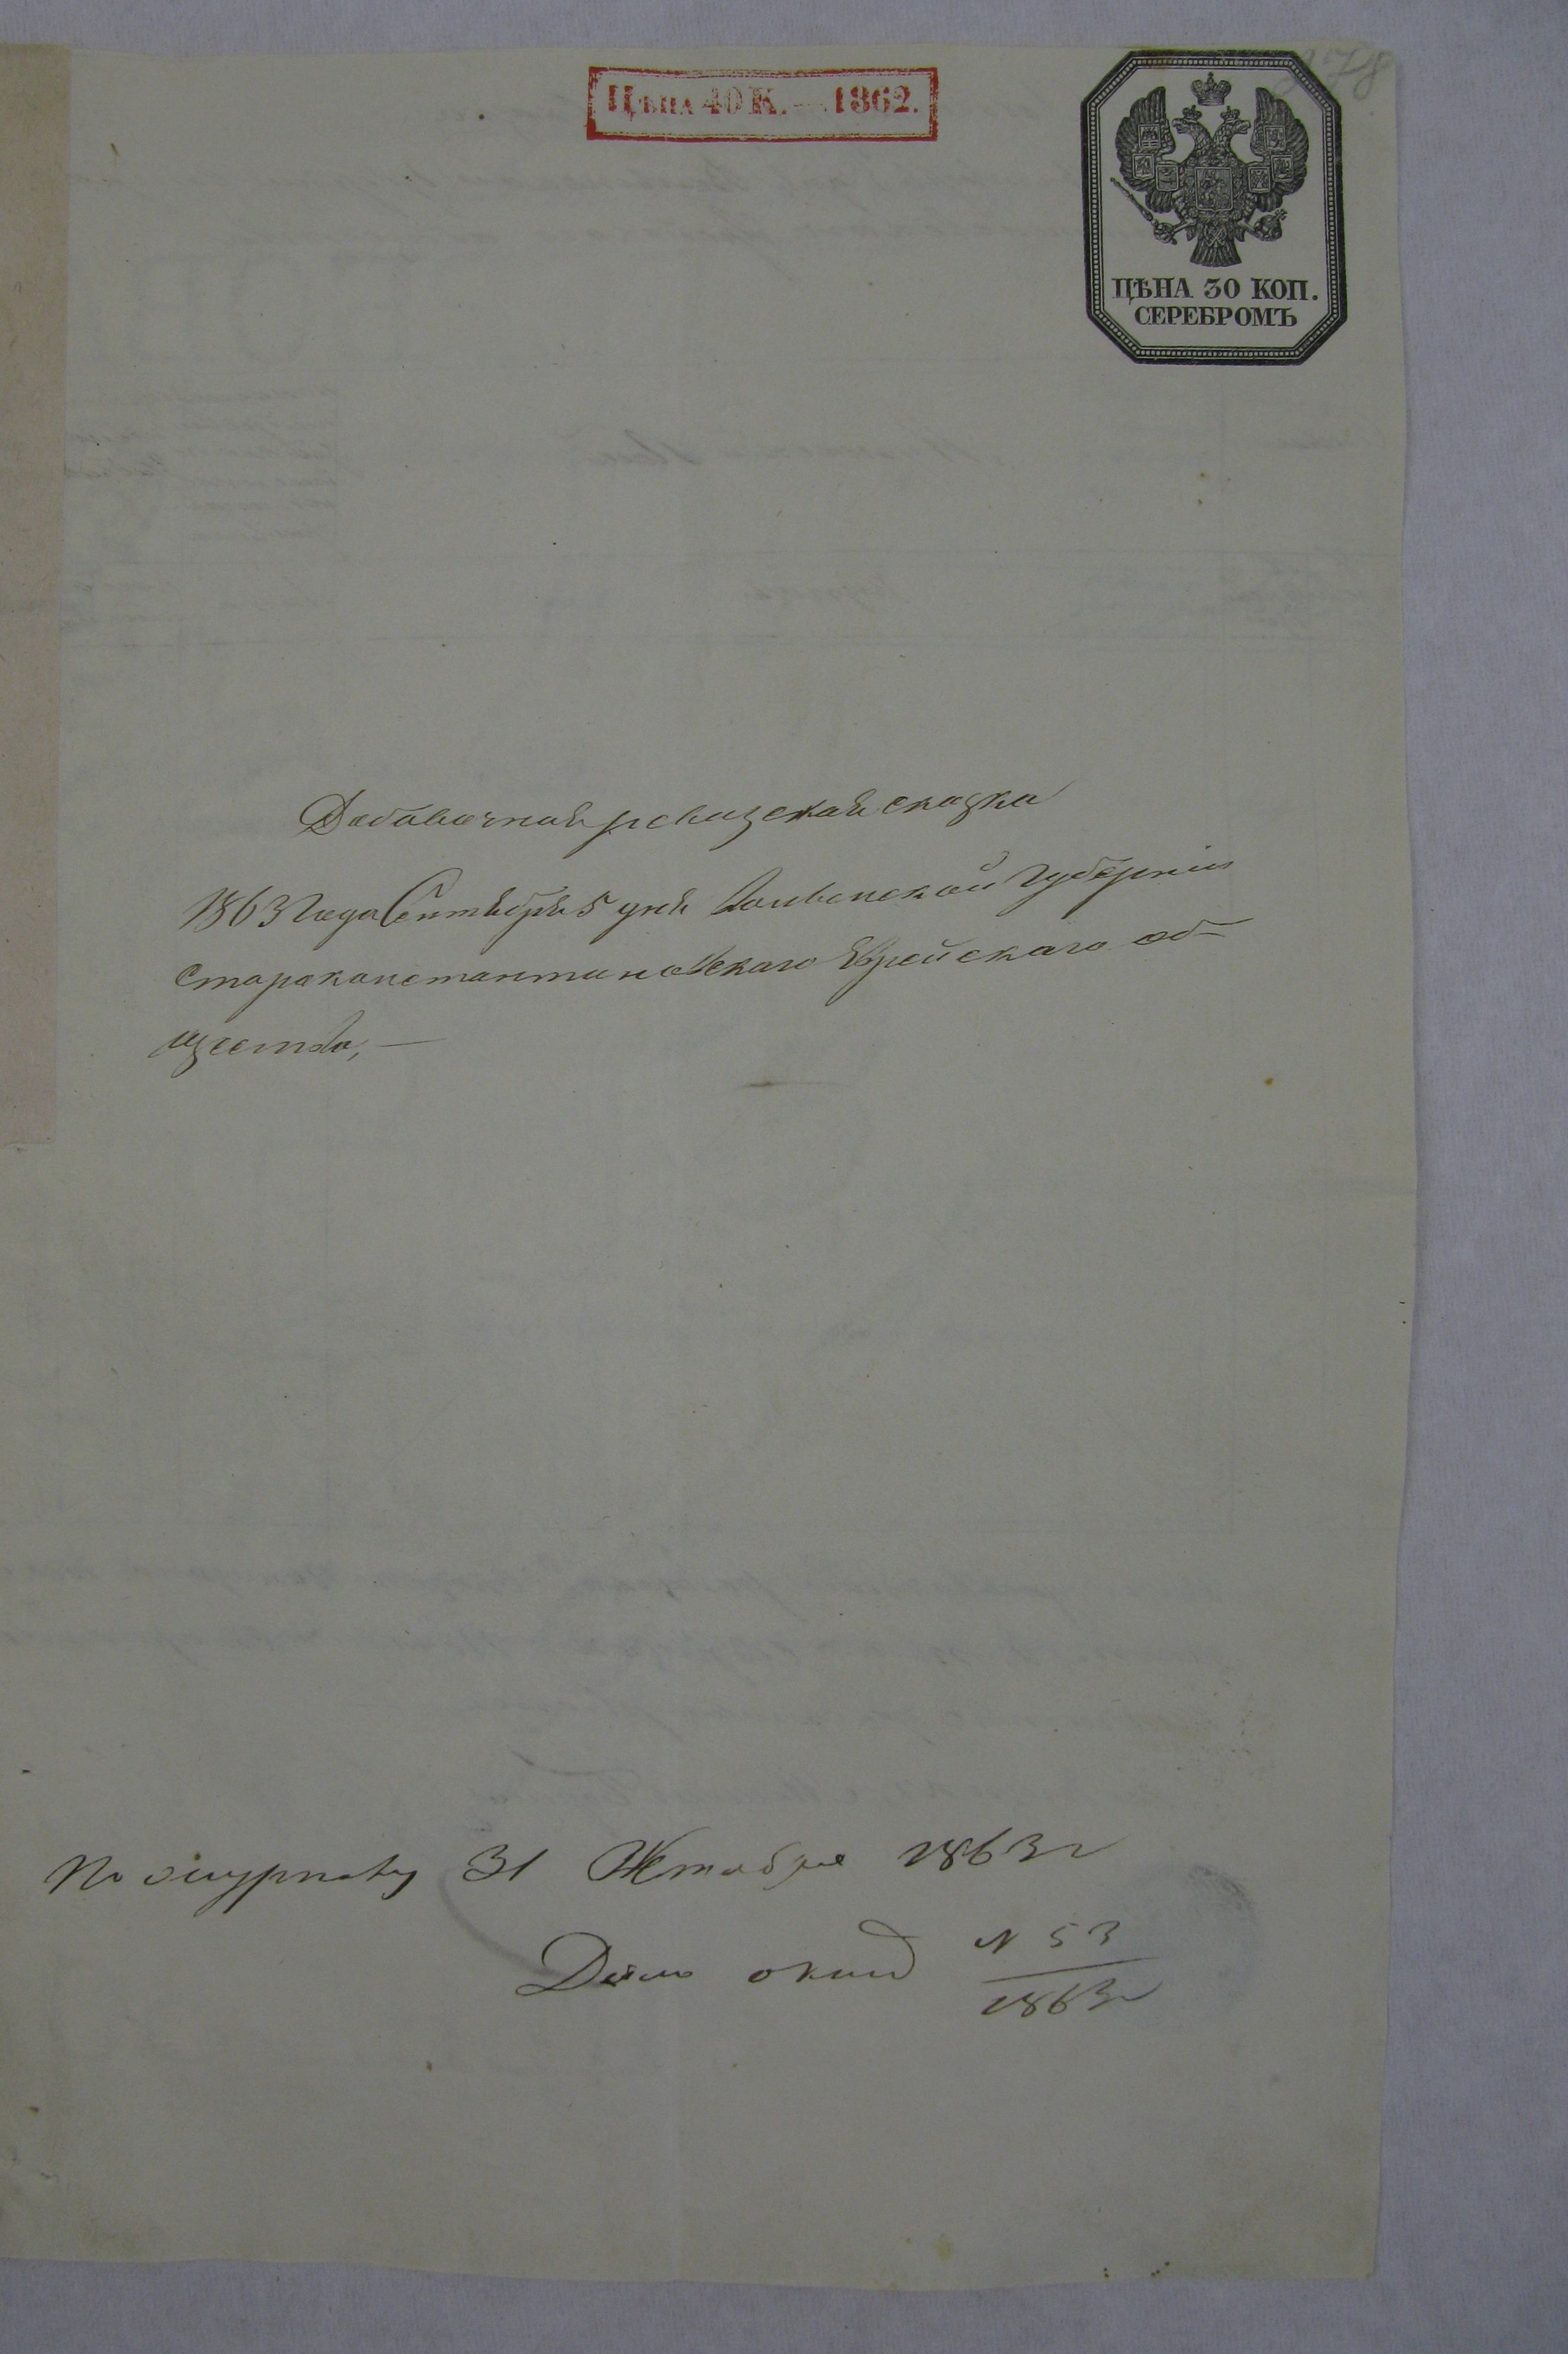 978
Цѣна 40 К. — 1862.
ЦѢНА 30 КОП.
СЕРЕБРОМЪ
Добавочная ревизская сказка
1863 года Сентября 5 дня Волынской Губерніи
Староконстантиновскаго Еврейскаго об-
щества, —
По журналу 31 Октября 1863 г
Дѣло N 53
1863 г